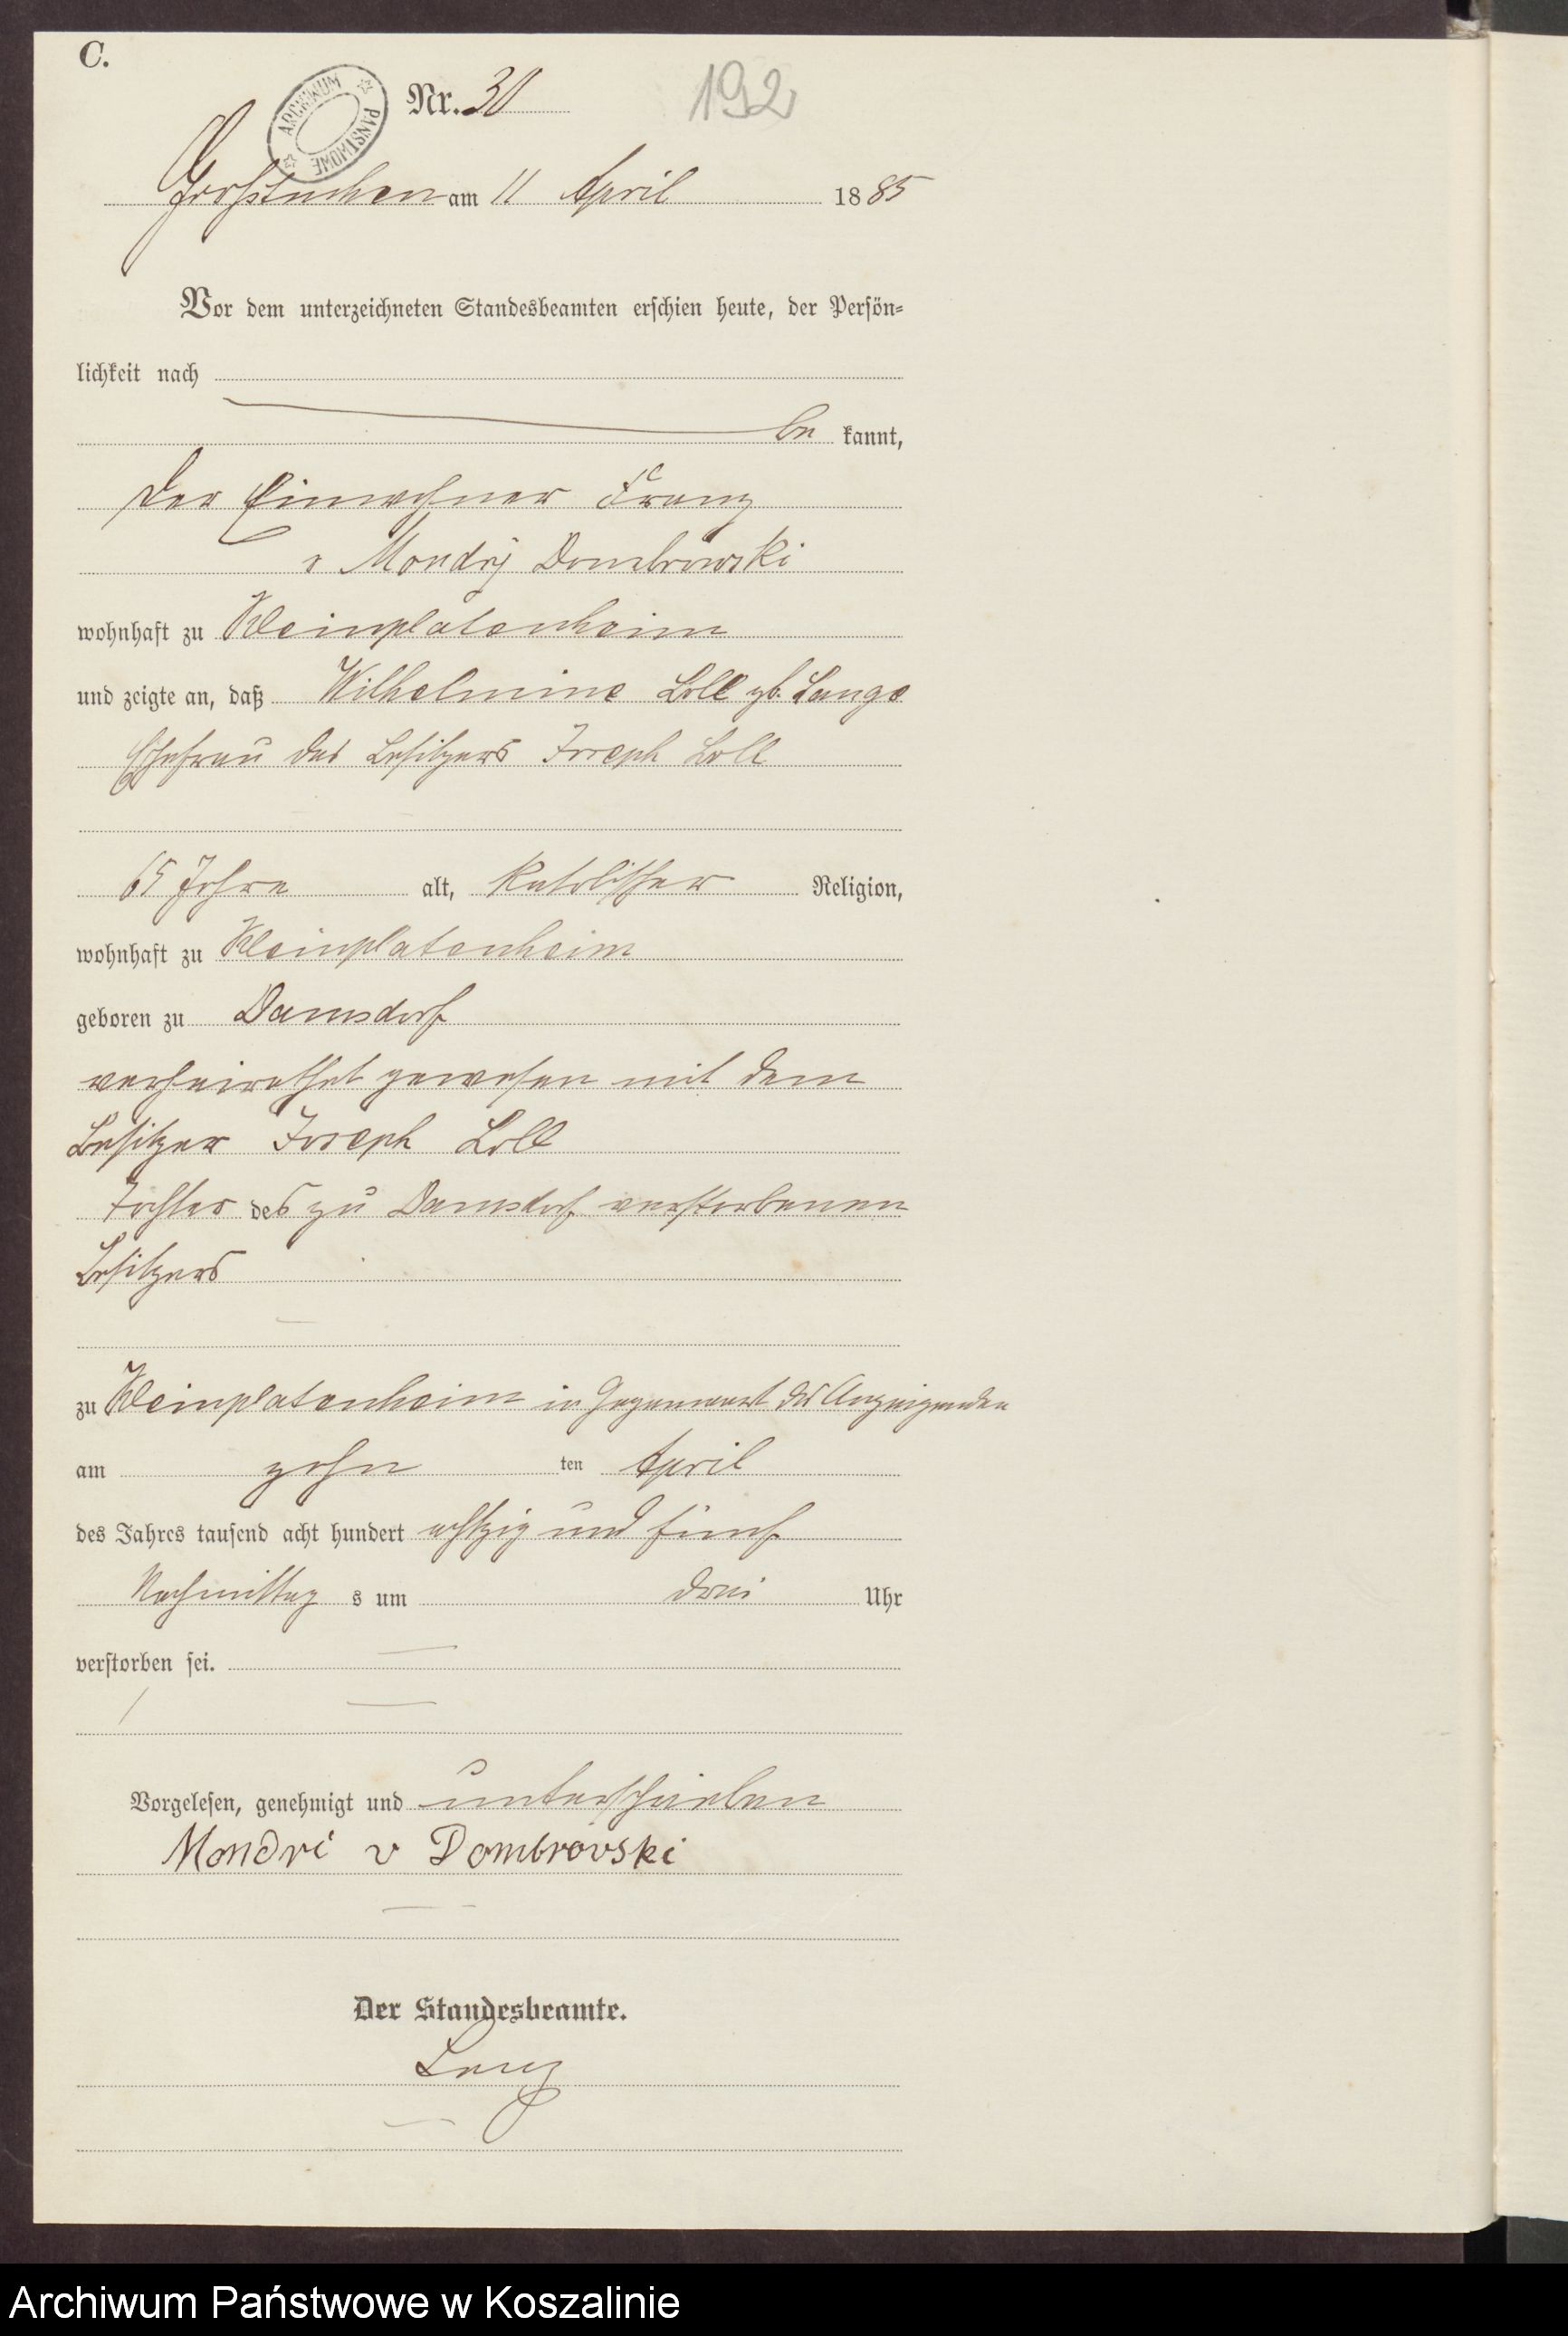 C.
ARCHIWUM PAŃSTWOWE
Nr. 30 192
Großtuchen am 11 April 1885
Vor dem unterzeichneten Standesbeamten erschien heute, der Persön-
lichkeit nach
be kannt,
der Einwohner Franz
v Mondrÿ Dombrowski
wohnhaft zu Kleinplatenheim
und zeigte an, daß Wilhelmine Loll gb. Lange
Ehefrau des Besitzers Joseph Loll
65 Jahre alt, katholischer Religion,
wohnhaft zu Kleinplatenheim
geboren zu Damsdorf
verheirathet gewesen mit dem
Besitzer Joseph Loll
Tochter des zu Damsdorf verstorbenen
Besitzers
zu Kleinplatenheim in Gegenwart des Anzeigenden
am zehn ten April
des Jahres tausend acht hundert achtzig und fünf
Nachmittag s um drei Uhr
verstorben sei.
Vorgelesen, genehmigt und unterschrieben
Mondri v Dombrovski
Der Standesbeamte.
Archiwum Państwowe w Koszalinie